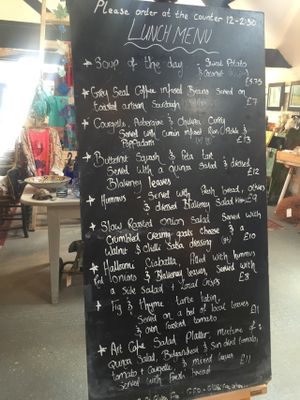 Please order at the counter 12-2:30
LUNCH MENU
* Soup of the day - Sweet Potato
& Coconut
£5.75
* Grey Seal Coffee infused Beans Served on
toasted artisan Sourdough £7
* Courgette, Aubergine & Chickpea Curry
Served with cumin infused Rice, Pickle &
Poppadom £13
* Butternut Squash & Feta tart
Served with a Quinoa Salad & dressed
Blakeney leaves £12
* Hummus - Served with fresh bread, olives
& dressed Blakeney Salad £9
* Slow Roasted Onion Salad Served with
Crumbled creamy goats cheese & a
Walnut & chilli Salsa dressing (gf) £10
* Halloumi Ciabatta, filled with hummus
Red Tomato & Blakeney leaves, Served with
a side Salad & local Crisps £8
* Fig & Thyme tarte tatin,
Served on a bed of local leaves
& oven roasted tomato £11
* Art Cafe Salad Platter, mixture of :
Quinoa Salad, & Sun dried tomato,
tomato & Courgette, & mixed leaves
Served with Fresh bread £11